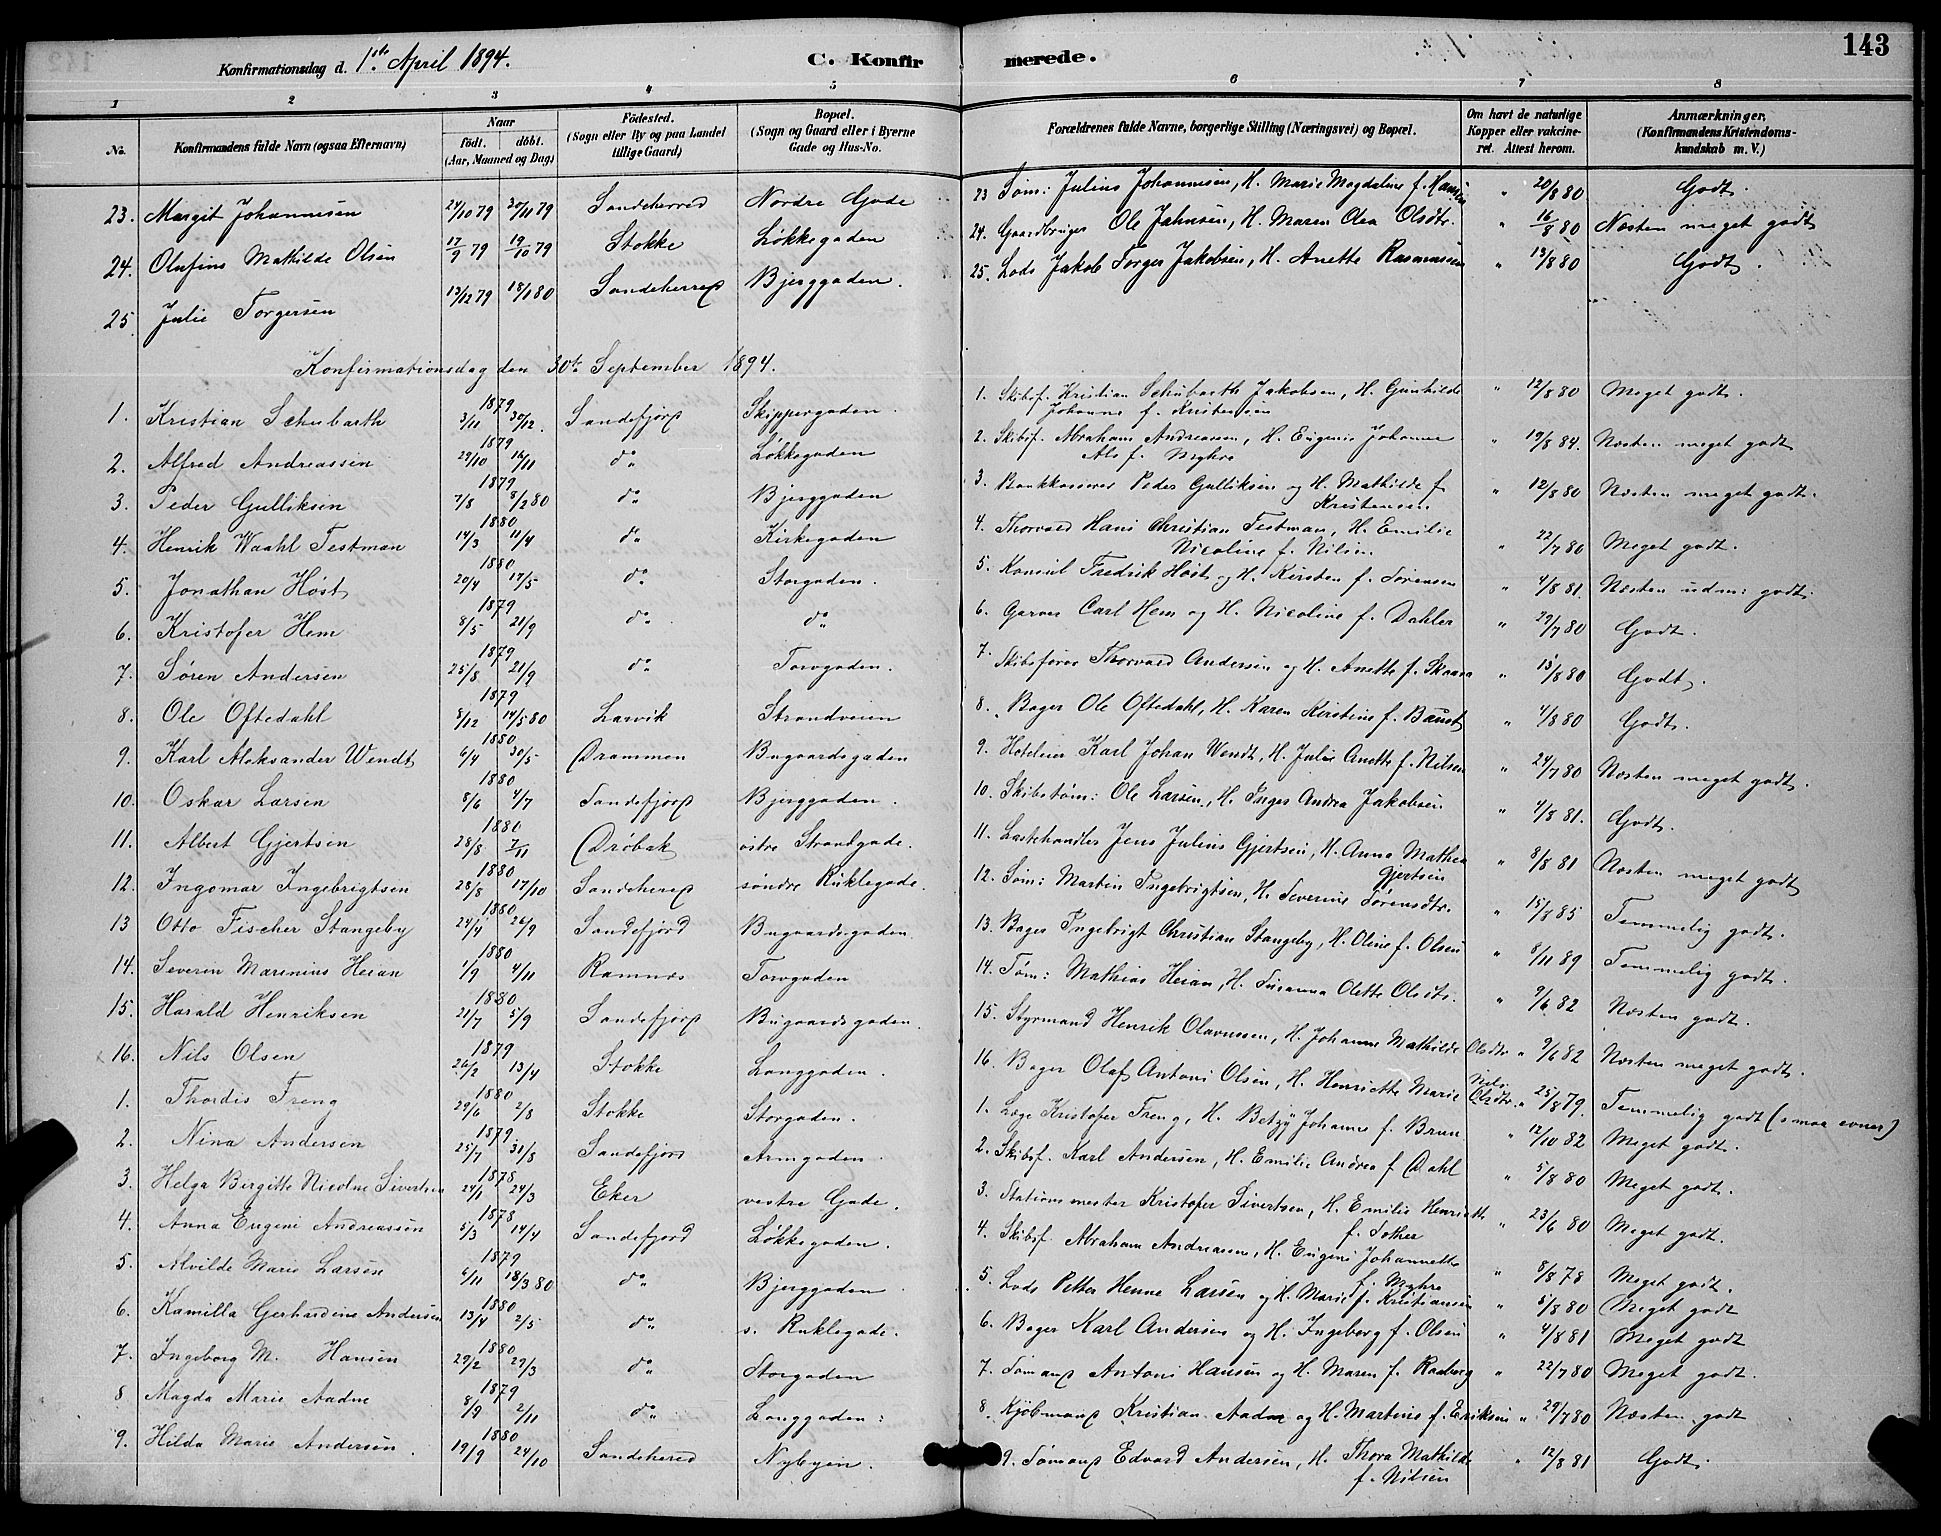 Konfirmationsdag d. 1ste April 1894. C. Konfirmerede. 143
1 2 3 4 5 6 7 8
No. Konfirmandens fulde Navn (ogsaa Efternavn) Naar født. døbt. (Aar, Maaned og Dag) Födested. (Sogn eller By og paa Landet tillige Gaard) Bopæl. (Sogn og Gaard eller i Byerne Gade og Hus-No. Forældrenes fulde Navne, borgerlige Stilling (Næringsvei) og Bopæl. Om havt de naturlige Kopper eller vakcineret. Attest herom. Anmærkninger, (Konfirmandens Kristendomskundskab m. V.)
23. Margit Johannesen 24/10 79 30/11 79 Sandeherred Nordre Gade 23 Tøm: Julius Johannesen, H. Marie Magdaline f. Hansen " 20/8 80 Godt.
24. Olufine Mathilde Olsen 17/9 79 19/10 79 Stokke Løkkegaden 24. Gaardbruger Ole Jahnsen, H. Maren Olea Olsdtr. " 16/8 80 Næsten meget godt
25. Julie Torgersen 13/12 79 18/1 80 Sandeherred Bjerggaden. 25. Lods Jakob Torger Jakobsen, H. Anette Rasmussen " 12/8 80 Godt.
Konfirmationsdag den 30te September 1894.
1. Kristian Schubarth 1879 3/11 30/12. Sandefjord Skippergaden. 1. Skibsf. Kristian Schubarth Jakobsen, H. Gunhilde Johanne f. Kristensen " 12/8 80 Meget godt.
2. Alfred Andreassen 1879 29/10 16/11 do Løkkegaden 2. Skibsf. Abraham Andreassen, H. Eugenie Johanne f. Myhre " 19/8 84. Næsten meget godt
3. Peder Gulliksen 1879 7/8 8/2 80 do Bjerggaden 3. Bankkasserer Peder Gulliksen og H. Mathilde f. Kristensen " 12/8 80 Næsten meget godt.
4. Henrik Waahl Testman 1880 14/3 11/4 do Kirkegaden 4. Thorvald Hans Christian Testman, H. Emilie Nicoline f. Nilsen. " 22/7 80 Meget godt.
5. Jonathan Høst 1880 20/4 17/5 do Storgaden. 5. Konsul Fredrik Høst og H. Kirsten f. Sørensen " 4/8 81. Næsten udm: godt.
6. Kristofer Hem 1879 8/5 21/9 do do 6. Garver Carl Hem og H. Nicoline f. Dahler " 29/7 80 Godt.
7. Søren Andersen 1879 25/8 21/9 do Torvgaden. 7. Skibsfører Thorvald Andersen og H. Anette f. Skaara " 13/8 80 Godt.
8. Ole Oftedahl 1879 8/12 14/5 80 Larvik Strandveien 8. Bager Ole Oftedahl, H. Karen Kirstine f. Baust " 4/8 80 Godt.
9. Karl Aleksander Wendt 1880 6/4 30/5 Drammen Bugaardsgaden 9. Hoteleier Karl Johan Wendt, H. Julie Anette f. Nilsen " 24/7 80 Næsten meget godt.
10. Oskar Larsen 1880 8/6 4/7 Sandefjord Bjerggaden. 10. Skibstøm: Ole Larsen, H. Inger Andrea Jakobsen " 4/8 81. Godt.
11. Albert Gjertsen 1880 28/8 7/11 Drøbak østre Strandgade. 11. Lastehandler Jens Julius Gjertsen, H. Anna Mathea Gjertsen " 8/8 81 Næsten meget godt
12. Ingomar Ingebrigtsen 1880 28/8 17/10 Sandeherred søndre Ruklegade. 12. Søm: Martin Ingebrigtsen, H. Severine Sørensdtr. " 15/8 85 Temmelig godt.
13 Otto Fischer Stangeby 1880 24/4 26/9 Sandefjord Bugaardsgaden. 13. Bager Ingebrigt Christian Stangeby, H. Oline f. Olsen " 8/11 89 Temmelig godt.
14. Severin Marinius Heian 1880 1/9 4/11 Ramnes Torvgaden 14. Tøm: Mathias Heian, H. Susanna Olette Olsdtr. " 9/6 82 Næsten godt.
15. Harald Henriksen 1880 21/7 5/9 Sandefjord Bugaardsgaden. 15. Styrmand Henrik Olavussen, H. Johanne Mathilde Olsdtr " 9/6 82 Næsten meget godt.
16. Nils Olsen 1879 26/2 13/4 Stokke Langgaden. 16. Bager Olaf Antoni Olsen, H. Henriette Marie Nils Olsdtr. " 25/8 79. Temmelig godt (smaa evner)
1. Thordis Treng 1880 29/6 2/8 Stokke Storgaden. 1. Læge Kristofer Treng, H. Betzy Johanne f. Brun " 12/10 82 Meget godt.
2. Nina Andersen 1879 25/7 31/8 Sandefjord Armgaden. 2. Skibsf. Karl Andersen, H. Emilie Andrea f Dahl " 5/8 80 Meget godt.
3. Helga Birgitte Nicoline Sivertsen 1878 24/1 24/3 Eker vestre Gade. 3. Stationsmester Kristofer Sivertsen, H. Emilie Henriette f. Sother " 23/6 80 Meget godt.
4. Anna Eugeni Andreassen 1878 5/3 14/4 Sandefjord Løkkegaden. 4. Skibsf. Abraham Andreasen, H. Eugeni Johannette f. Myhre " 8/8 78 Meget godt.
5. Alvilde Marie Larsen 1879 6/11 18/3 80 do Bjerggaden 5. Lods Petter Henne Larsen og H. Marie f. Kristiansen " 5/8 80 Meget godt
6. Kamilla Gerhardine Andersen 1880 13/4 2/5 do s. Ruklegade. 6. Bager Karl Andersen og H. Ingeborg f. Olsen " 4/8 81 Meget godt
7. Ingeborg M. Hansen 1880 29/2 29/3 do Storgaden 7. Sømand Antoni Hansen og H. Maren f. Raaberg " 22/7 80 Meget godt.
8 Magda Marie Aadne 1879 8/9 2/11 do Langgaden: 8. Kjøbmand Kristian Aadne og H. Martine f. Eriksen " 29/7 80 Næsten godt
9. Hilda Marie Andersen. 1880 19/9 24/10 Sandeherred Nybyen. 9. Sømand Edvard Andersen, H. Thora Mathilde f. Nilsen " 12/8 81 Godt.